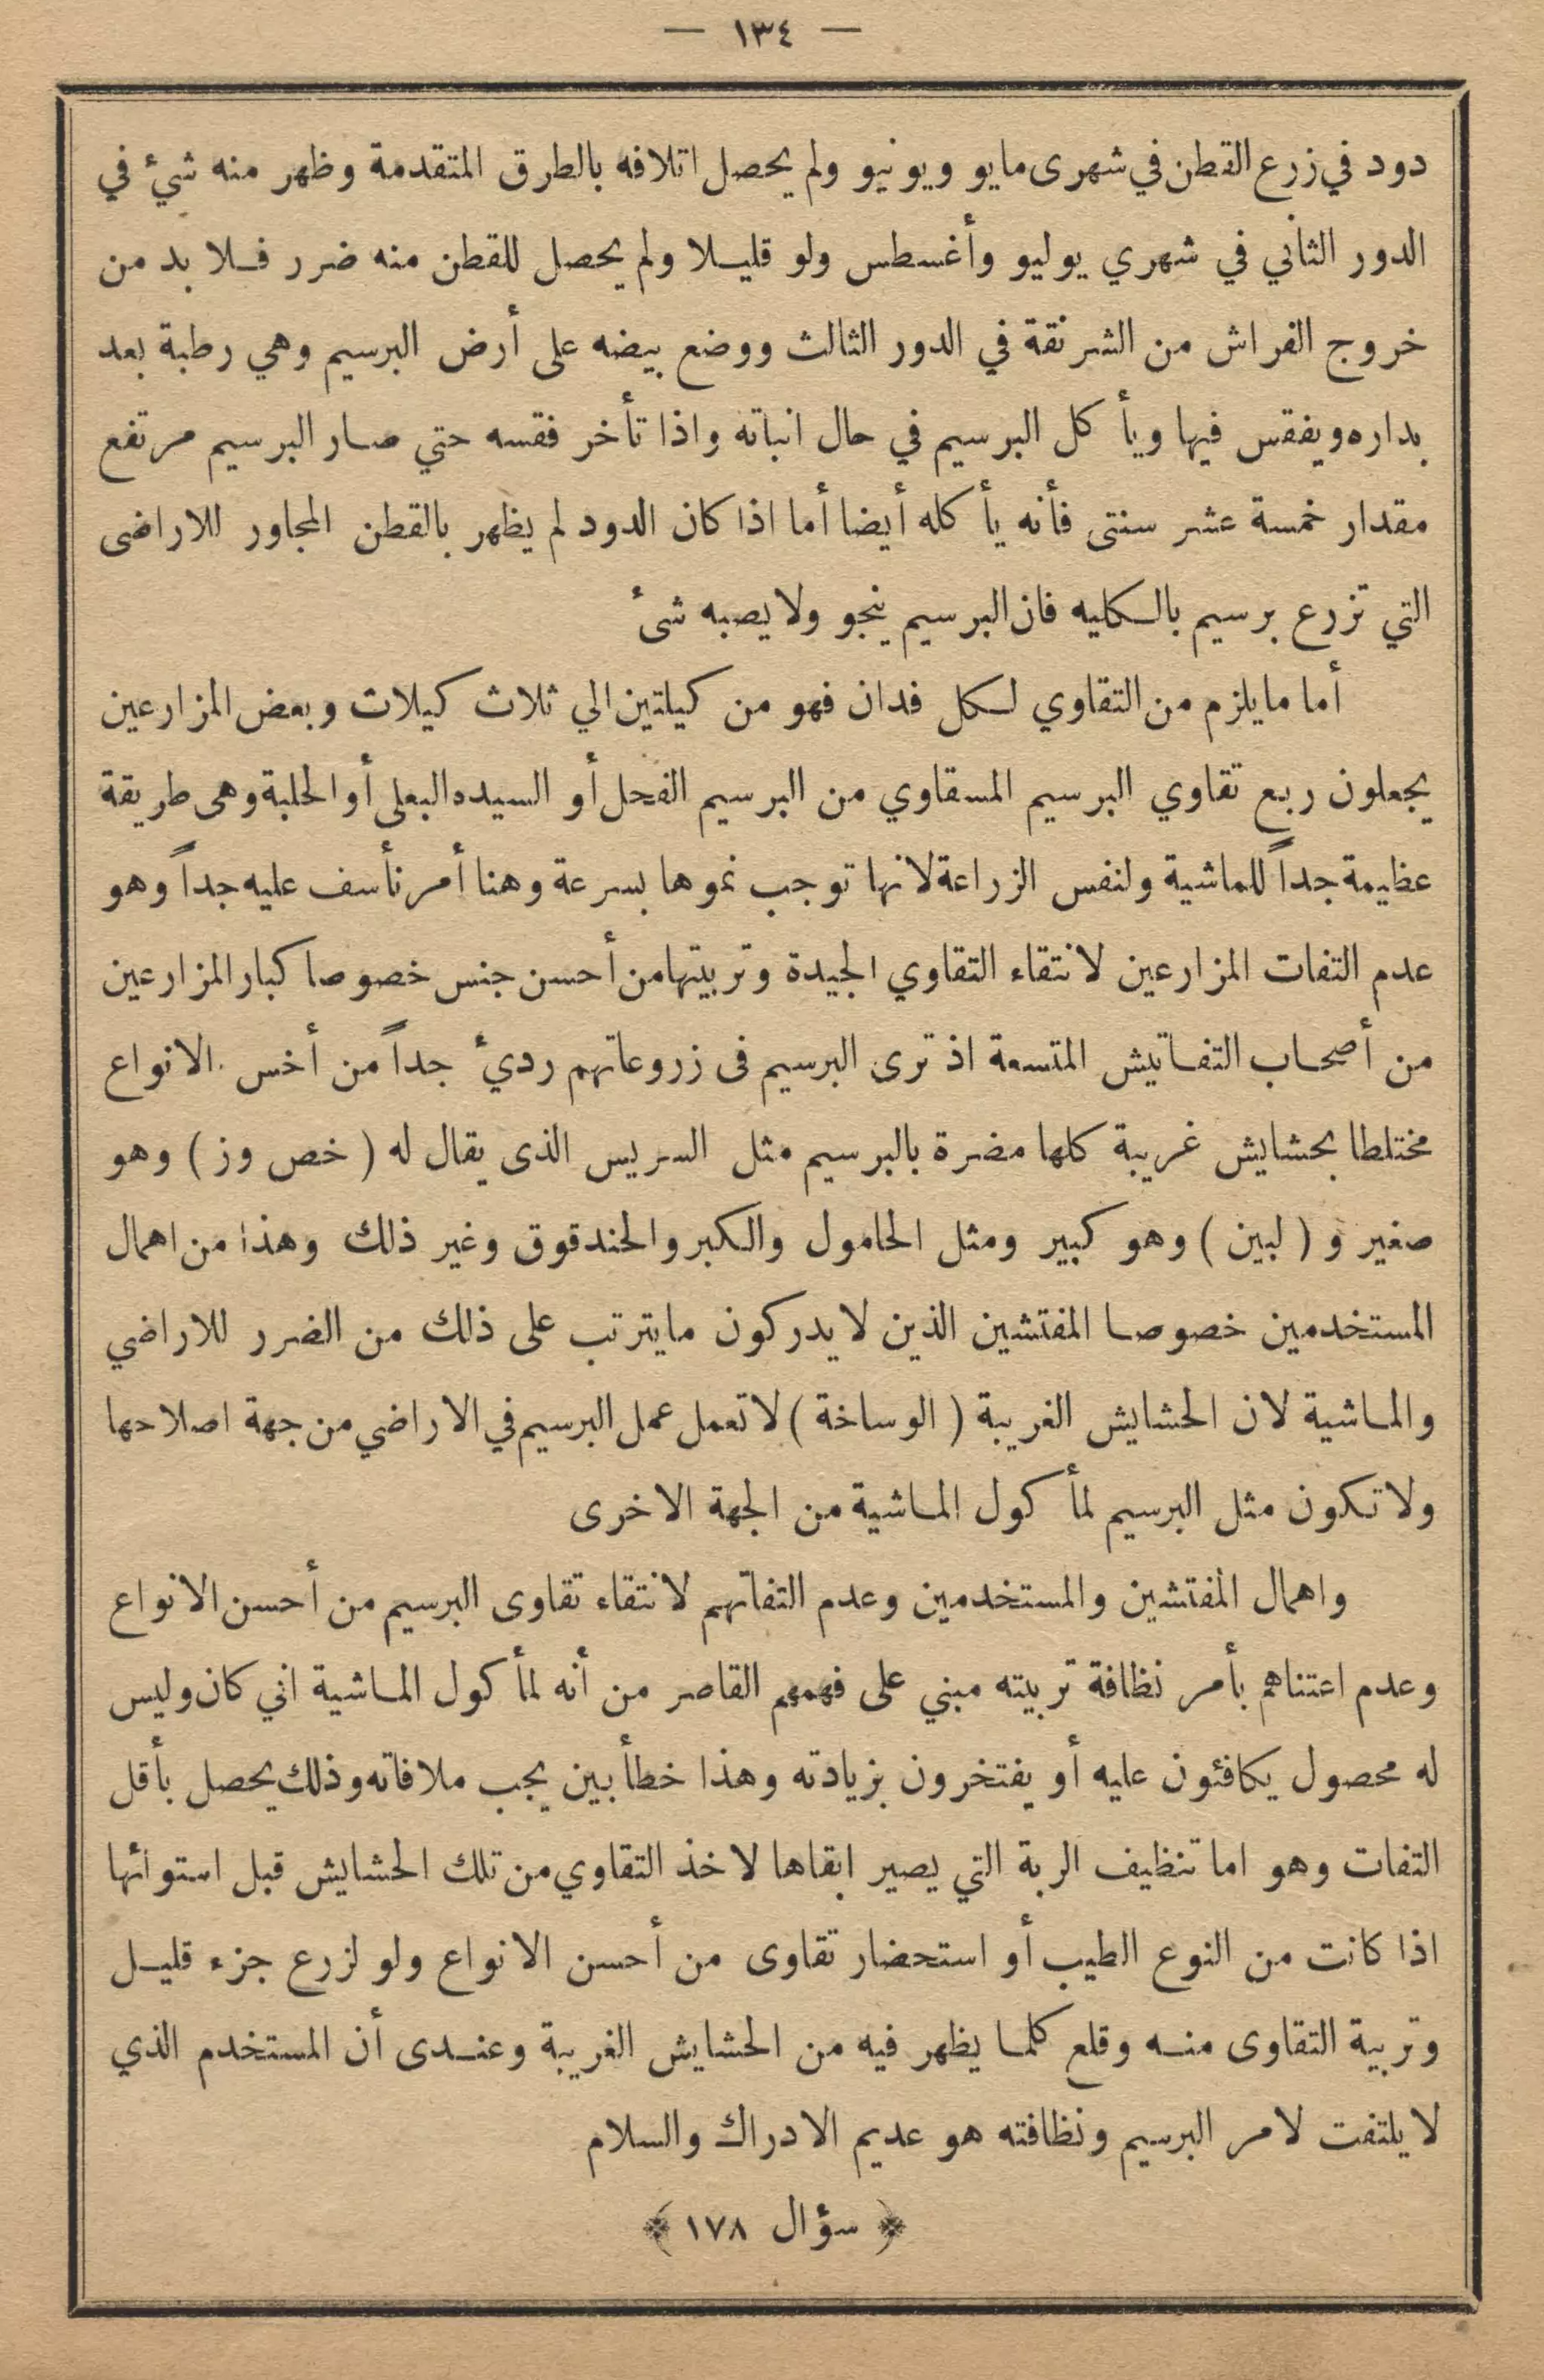 — ١٣٤ —
دود في زرع القطن في شهرى مايو ويونيو ولم يحصل اتلافه بالطرق المتقدمة وظهر منه شيء في
الدور الثاني في شهري يوليو وأغسطس ولو قليلا ولم يحصل للقطن منه ضرر فلا بد من
خروج الفراش من الشرنقة في الدور الثالث ووضع بيضه على أرض البرسيم وهي رطبة بعد
بداره ويفقس فيها ويأكل البرسيم في حال انباته واذا تأخر فقسه حتي صار البرسيم مرتفع
مقدار خمسة عشر سنتى فأنه يأكله أيضا أما اذا كان الدود لم يظهر بالقطن المجاور للاراضى
التي تزرع برسيم بالكليه فان البرسيم ينجو ولا يصبه شئ
أما ما يلزم من التقاوي لكل فدان فهو من كيلتين الي ثلاث كيلات وبعض المزارعين
يجعلون ربع تقاوي البرسيم المسقاوي من البرسيم الفحل أو السيده البعلى أو الحلبة وهى طريقة
عظيمة جداً للماشية ولنفس الزراعة لانها توجب نموها بسرعة وهنا أمر نأسف عليه جداً وهو
عدم التفات المزارعين لانتقاء التقاوي الجيدة وتربيتها من أحسن جنس خصوصا كبار المزارعين
من أصحاب التفاتيش المتسعة اذ ترى البرسيم فى زروعاتهم رديء جداً من أخس الانواع
مختلطا بحشايش غريبة كلها مضرة بالبرسيم مثل السريس الذى يقال له ( خص وز ) وهو
صغير و ( لبين ) وهو كبير ومثل الحامول والكبر والحندقوق وغير ذلك وهذا من اهمال
المستخدمين خصوصا المفتشين الذين لا يدركون ما يترتب على ذلك من الضرر للاراضي
والماشية لان الحشايش الغريبة ( الوساخة ) لا تعمل عمل البرسيم في الاراضي من جهة اصلاحها
ولا تكون مثل البرسيم لمأكول الماشية من الجهة الاخرى
واهمال المفتشين والمستخدمين وعدم التفاتهم لانتقاء تقاوى البرسيم من أحسن الانواع
وعدم اعتناهم بأمر نظافة تربيته مبني على فهمهم القاصر من أنه لمأكول الماشية اني كان وليس
له محصول يكافئون عليه أو يفتخرون بزيادته وهذا خطأ بين يجب ملافاته وذلك يحصل بأقل
التفات وهو اما تنظيف الربة التي يصير ابقاها لاخذ التقاوي من تلك الحشايش قبل استوائها
اذا كانت من النوع الطيب أو استحضار تقاوى من أحسن الانواع ولو لزرع جزء قليل
وتربية التقاوى منه وقلع كلما يظهر فيه من الحشايش الغريبة وعندى أن المستخدم الذي
لا يلتفت لامر البرسيم ونظافته هو عديم الادراك والسلام
﴿ سؤال ١٧٨ ﴾